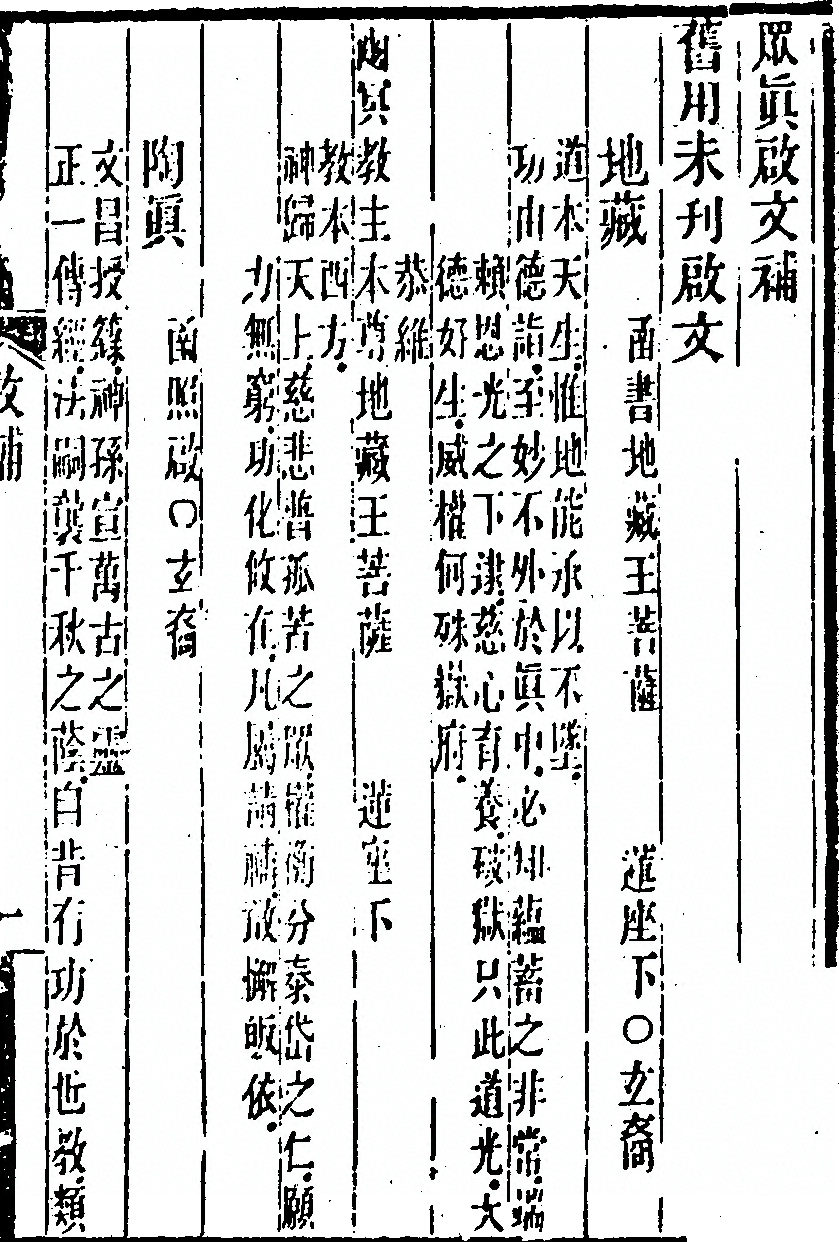 眾眞啟文補
舊用未刊啟文
地藏　函書地藏王菩薩　蓮座下○玄裔
道本天生惟地能承以不墜
功由德詣至妙不外於眞中必知蘊蓄之非常端
賴恩光之下逮慈心育養破獄只此道光大
德好生威權何殊嶽府
恭維
幽冥教主本尊地藏王菩薩　蓮座下
教本西方
神歸天上慈悲普孤苦之眾權衡分泰岱之仁願
力無窮功化攸在凡屬請禱敢懈皈依
陶眞　函照啟○玄裔
文昌授籙神孫宣萬古之靈
正一傳經法嗣襲千秋之蔭自昔有功於世教類
文補